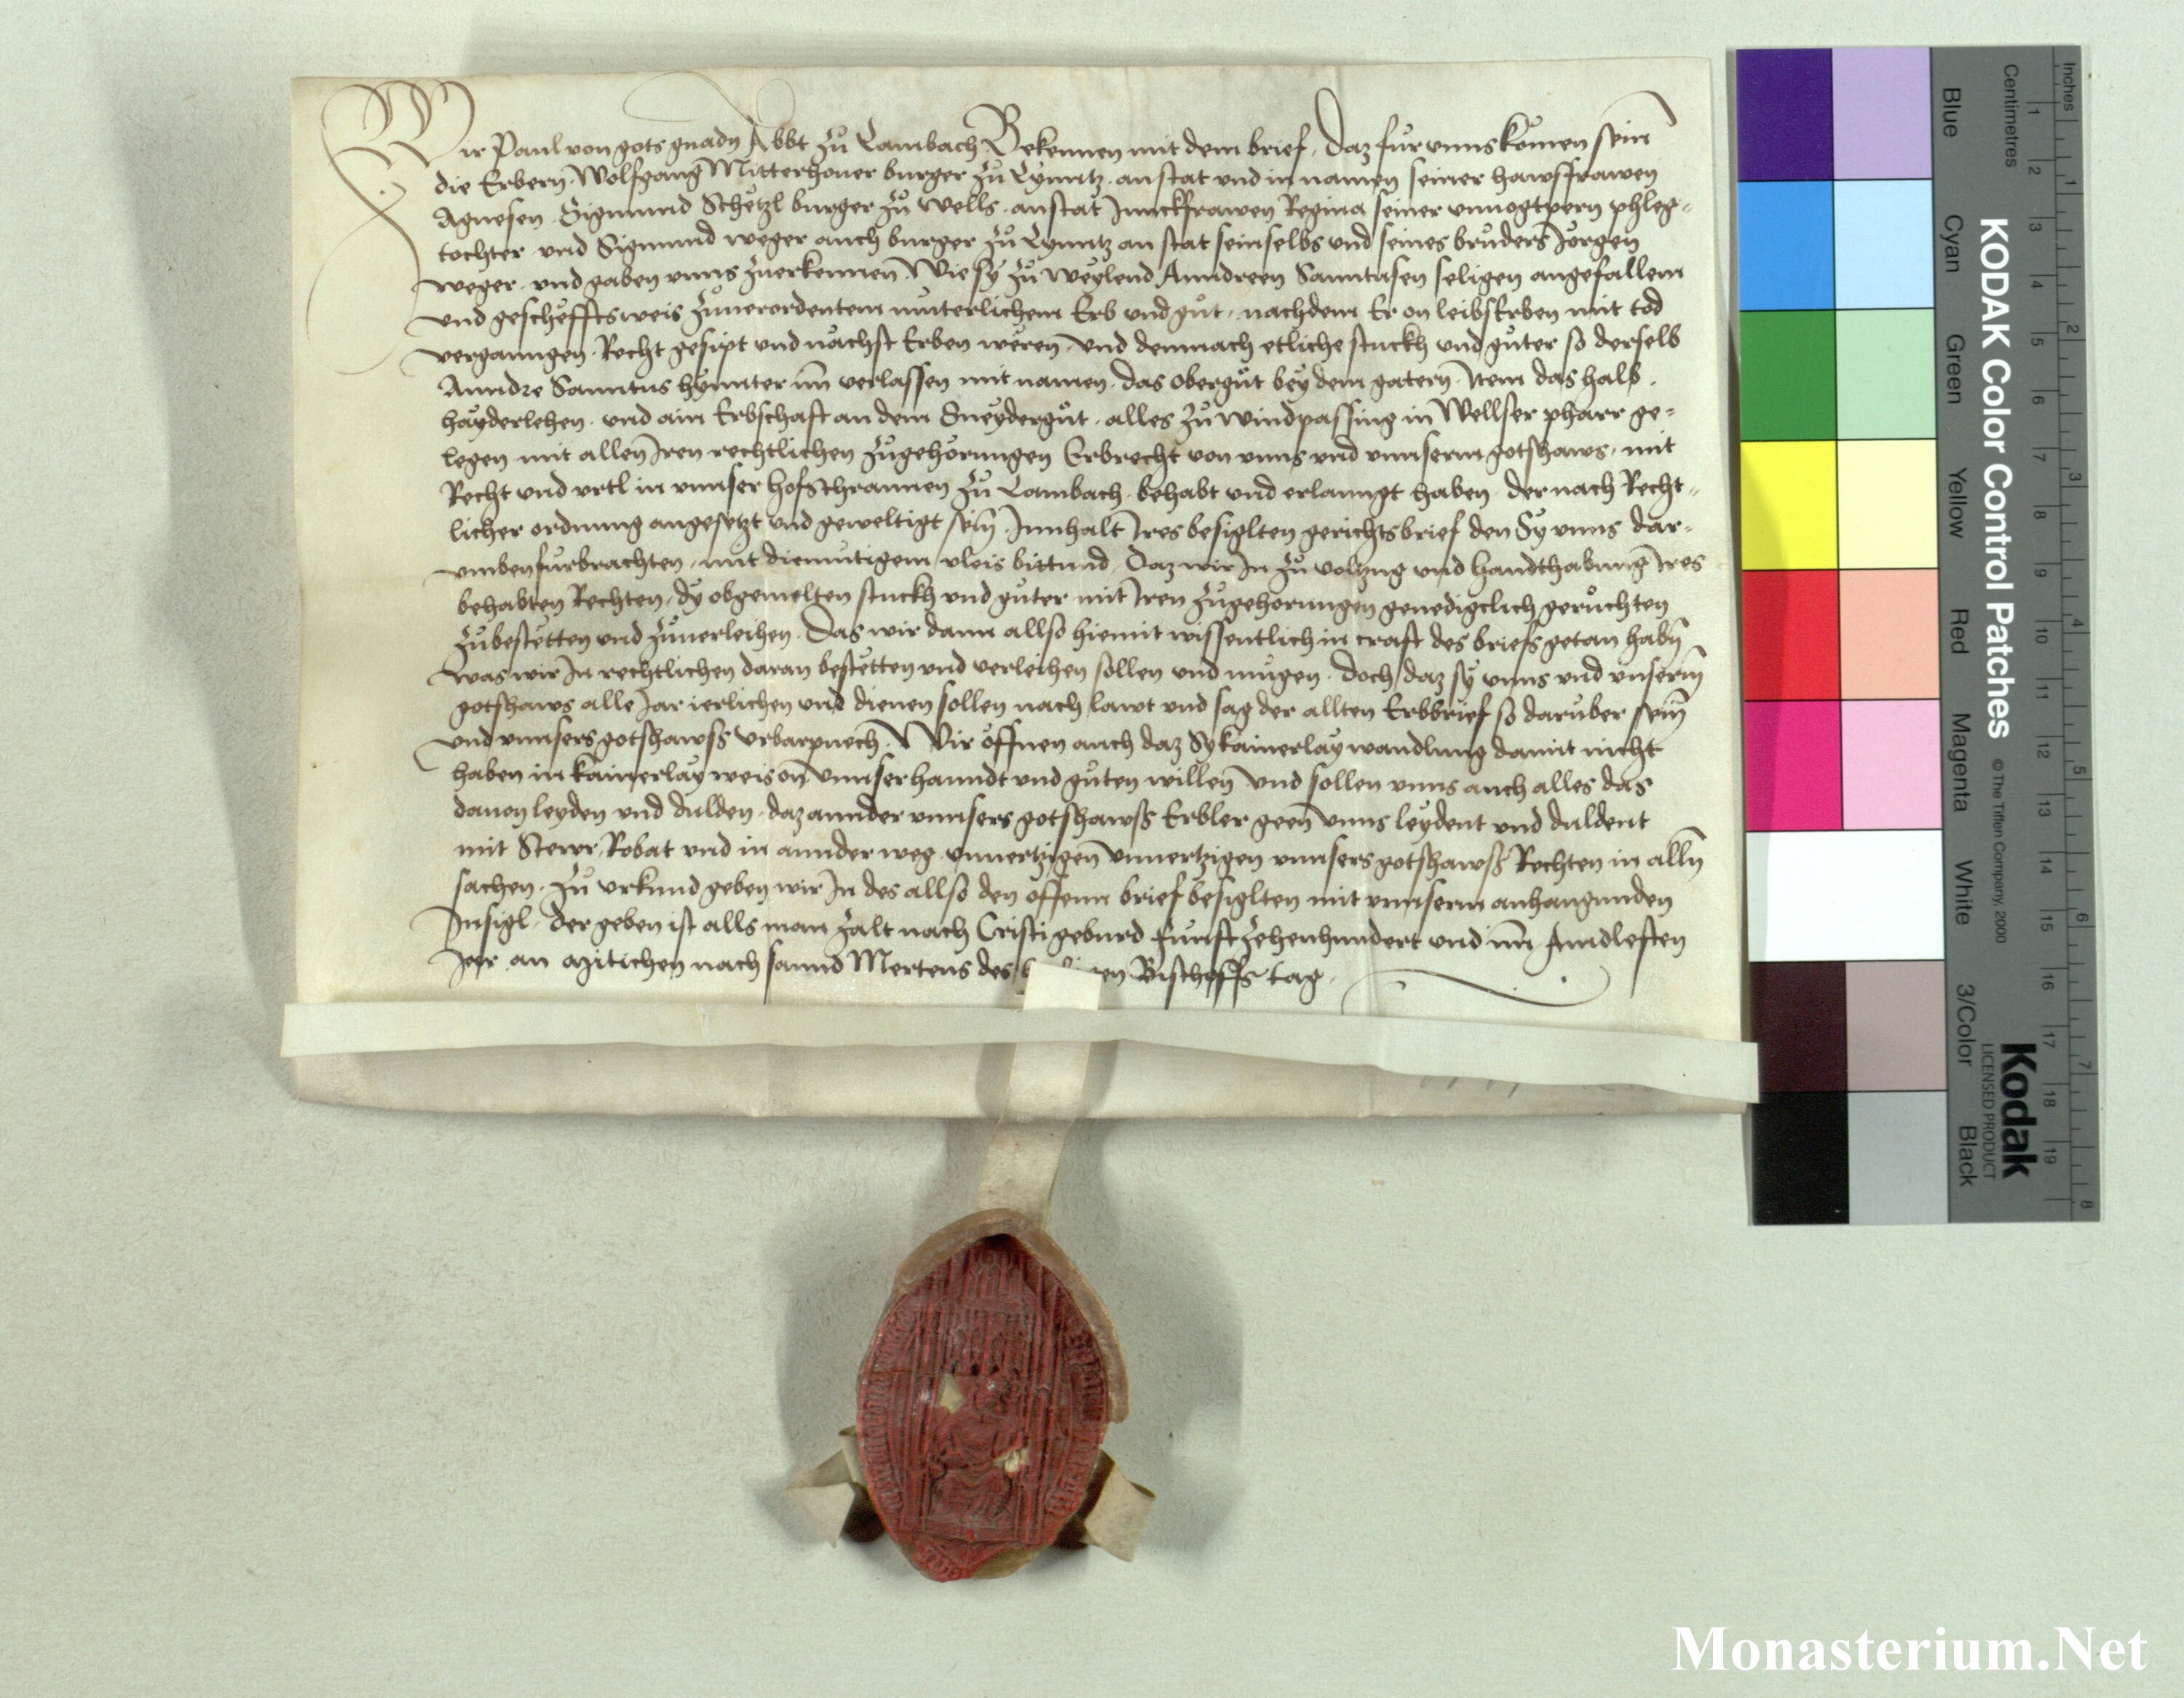 Wir Paul von gots gnadn Abbt zů Lambach Bekennen mit dem brief, Daz fur vnns komen sein
die Erbern Wolfgang Mitterhouer burger zů Lynntz anstat vnd in namen seiner hawsfrawen
Agnesen Sigmund Schëtzl burger zů Wells anstat Junckfrawen Regina seiner vnuogtpern phleg-
tochter vnd Sigmund weger auch burger zů Lynntz an stat seinselbs vnd seines brůders Jorgen
weger vnd gaben vnns zuerkennen Wie sy zů weylend Anndreen Sanntusen seligen angefallem
vnd gescheffts weis zuuerordentem muterlichem Erb vnd gůt, nachdem Er on leibserben mit tod
verganngen Recht gesipt vnd nächst Erben weren vnd demnach etliche stuckh vnd gůter so derselb
Anndre Sanntus hynnter im verlassen mit namen das obergůt bey dem gatern Item das halb
hayderlehen vnd ain Erbschaft an dem Sneydergůt alles zů windpassing in Wellser pharr ge-
legen mit allen Iren rechtlichen zůgehorungen Erbrecht von vnns vnd vnnserm gotshaws, mit
Recht vnd vrtl in vnnser hofschrannen zů Lambach behabt vnd erlanngt haben der nach Recht-
licher ordnung angesetzt vnd geweltigt sein Innhalt Ires besiglten gerichtsbrief den Sy vnns dar-
vmben furbrachten, mit diemutigem vleis bittund, Daz wir In zů volzug vnd handthabung Ires
behabten Rechten, dy obgemelten stuckh vnd guter mit Iren zůgehorungen genedigclich gerůchten
zůbestetten vnd zůuerleihen Das wir dann allso hiemit wissentlich in craft des briefs getan habn
Was wir In rechtlichen daran bestetten vnd verleihen sollen vnd mugen doch daz sy vnns vnd vnserm
gotshaws alle Jar ierlichen vnd dienen sollen nach lawt vnd sag der allten Erbbrief so daruber sein
vnd vnnsers gotshawss vrbarpuech Wir offnen auch daz Sy kainerlay wandlung damit nicht
haben in kainerlay weis on vnnser hanndt vnd gůten willen vnd sollen vnns auch alles das
dauon leyden vnd dulden daz annder vnnsers gotshawss Erbler geen vnns leydent vnd duldent
mit Stewr Robat vnd in annder weg vnuertzigen vnuertzigen vnnsers gotshawss Rechten in alln
sachen zů vrkund geben wir In des allso den offenn brief besiglten mit vnnserm anhangunden
Insigl, der geben ist alls man zalt nach Cristi geburd funftzehenhundert vnd im Aindleften
Jar an Mitichen nach sannd Mertens des Bischoffs tag
Inches
Centimetres
KODAK Color Control Patches
© The Tiffen Company, 2000
Kodak
LICENSED PRODUCT
Blue
Cyan
Green
Yellow
Red
Magenta
White
3/Color
Black
1 2 3 4 5 6 7 8 9 10 11 12 13 14 15 16 17 18 19
1 2 3 4 5 6 7 8
Monasterium.Net